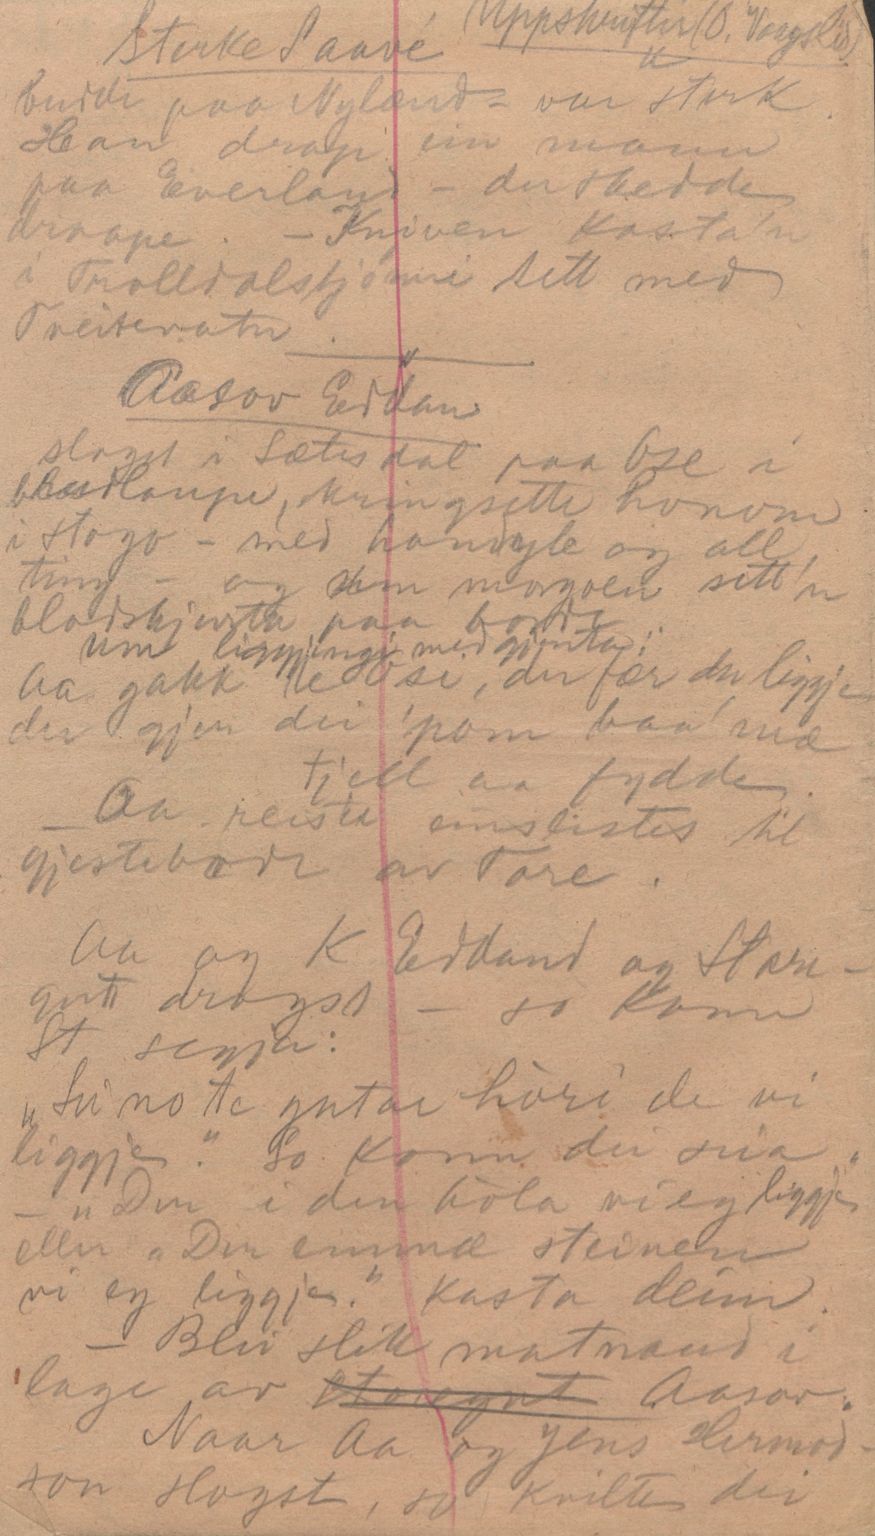 Uppskrifter (Ø. Vaagslid)
Sterke Saave
budde paa Nylænd = var sterk.
Han drap ein mann
paa Everland – der skedde
draape. – Kniven kasta'n
i Trolldalstjønni sett med
Treitevatn.
Aasov Eddan
slogst i Sætisdal paa Ose i
, kringsette honom
i stogo – med handyle og all
ting – og um morgoen sett'n
blodskjurta paa borde
um liggjingi med gjenta:
Aa gakk te Ose, der fær du liggje
der gjer dei 'pom baa' mæ
tjell aa fydde.
– Aa reiste einslistes til
gjestebode av Tore.
Aa og K Eddand og Store-
gutt drogst – so kom
St segja:
"Sei no te gutar hori de vi
liggje." So kom dei sia
– "Den i den hòla vi eg liggje"
eller "Der emmæ steinen
vi eg liggje." Kasta deim.
– Blei slik matnaud i
lage av Storegut Aasov.
Naar Aa og Jens Hermod-
son slogst, so kvilte dei